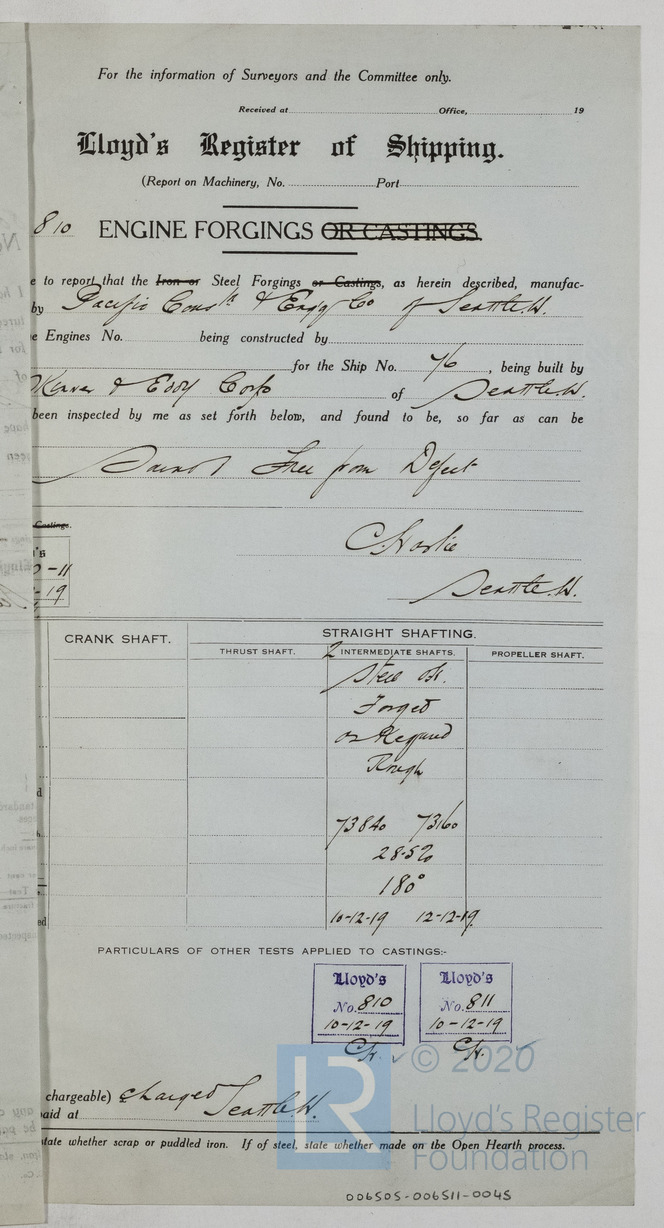 For the information of Surveyors and the Committee only.
Received at Office, 19
Lloyd's Register of Shipping.
(Report on Machinery, No. Port
810 ENGINE FORGINGS OR CASTINGS.
e to report that the Iron or Steel Forgings or Castings, as herein described, manufac-
by Pacific Const & Engg Co of Seattle.W.
e Engines No. being constructed by
for the Ship No. 76, being built by
& Eddy Corp of Seattle.W.
been inspected by me as set forth below, and found to be, so far as can be
Sound Free from Defect
Castings.
's
C.
0-11
-19
Seattle.W.
CRANK SHAFT. STRAIGHT SHAFTING.
THRUST SHAFT. 2 INTERMEDIATE SHAFTS. PROPELLER SHAFT.
Steel OH.
Forged
as Required
Rough
d
73840 73160
h.
28.5%
180°
ed 10-12-19 12-12-19
PARTICULARS OF OTHER TESTS APPLIED TO CASTINGS:-
Lloyd's Lloyd's
No. 810 No. 811
10-12-19 10-12-19
© 2020
chargeable) charged
paid at Seattle.W.
LR
Lloyd's Register
Foundation
state whether scrap or puddled iron. If of steel, state whether made on the Open Hearth process.
006505-006511-0045